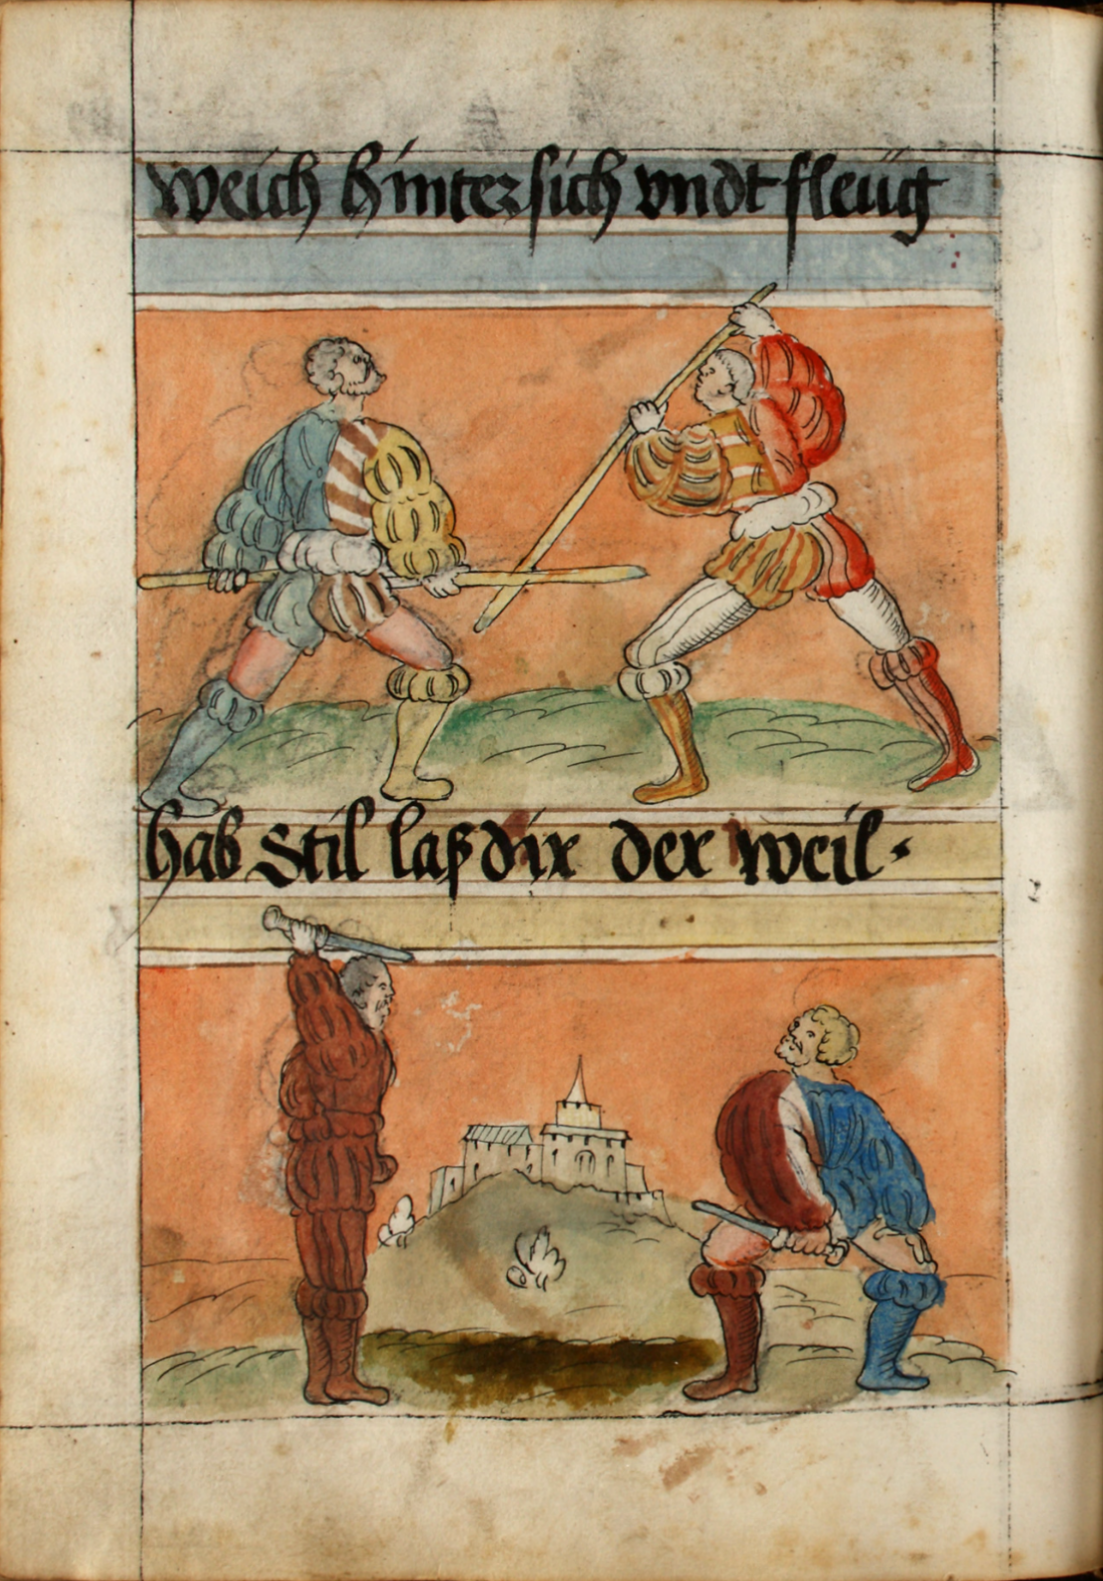 weich hinter sich vndt fleüg
hab Stil laß dir der weil.